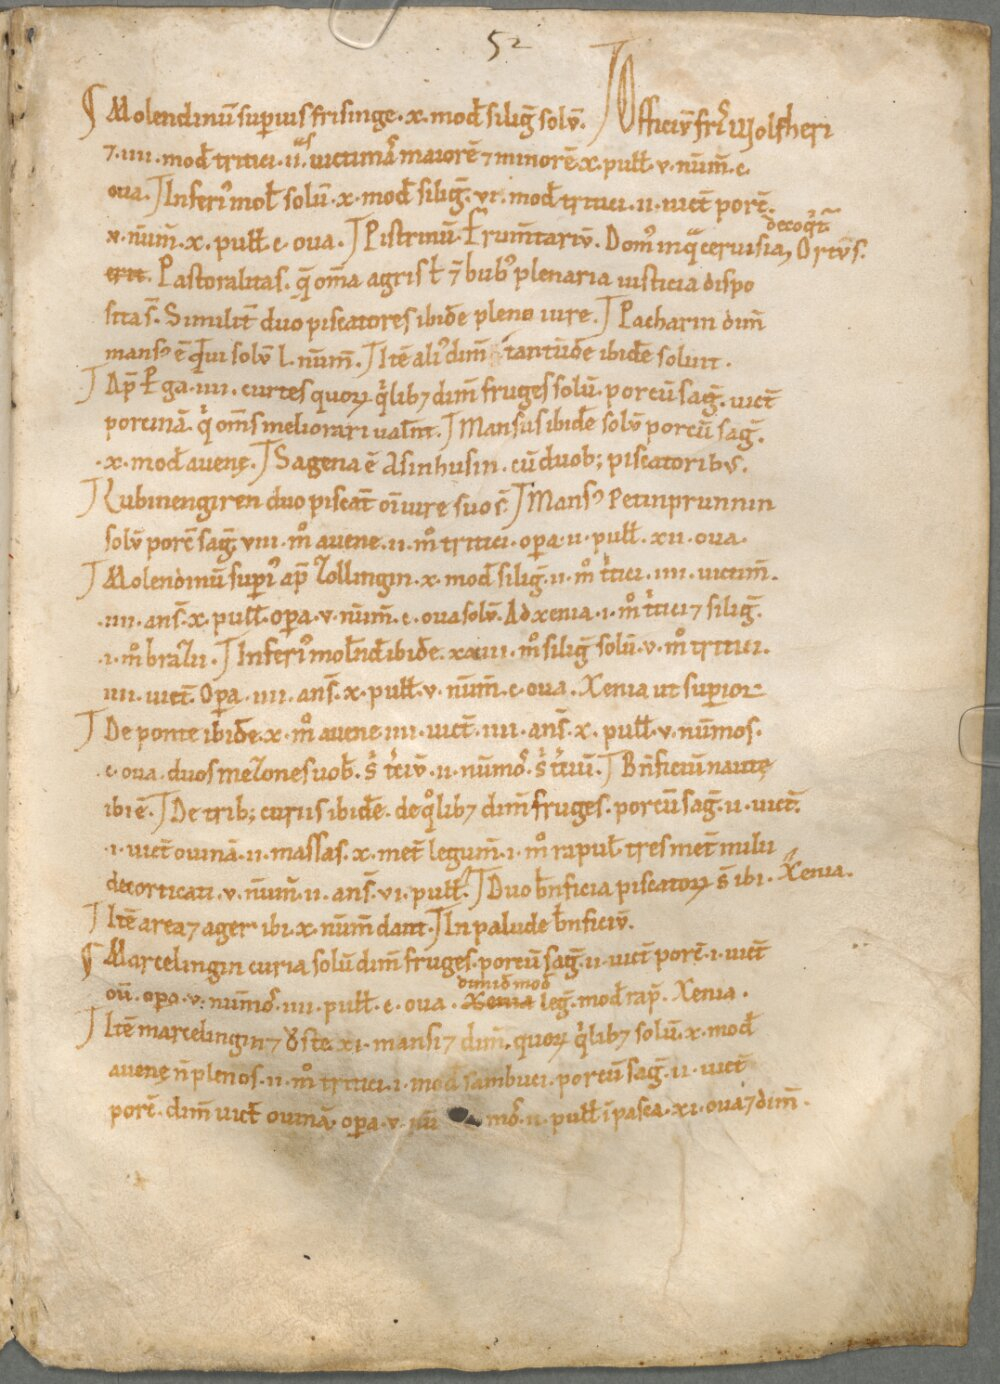 52
Molendinū supius frisinge · x · mod̄ siliḡ solv̄ . Officiv̄ frīs Wolfheri
⁊ · iiii · mod̄ tritici · ii · uictimā maiorē ⁊ minorē x · pull̄ · v · nūm̄ · c ·
oua · Inferi᷒ mol̄ solū · x · mod̄ siliḡ · vi · mod̄ tritici · ii · uict̄ porc̄ ·
decoq̄t̄
v · nūm̄ · x · pull̄ · c · oua · Pistrinū · Frum̄tariv̄ . Dom᷒ in q̄ ceruisia, Ortv᷒ s .
Pastoralitas . q̄ om̄a agris ł ī bub᷒ plenaria iusticia dispo
sita s̄ . Similit̄ duo piscatores ibidē pleno iure . Pacharin dim̄
mans᷒ ē qui solv̄ l · nūm̄ · Itē ali᷒ dim̄ tantūdē ibidē soluit .
Ap̄ P̄ga · iiii · curtes quoꝝ q̄libꝫ dim̄ fruges solū · porcū saḡ · uict̄
porcinā · q̄ om̄s meliorari ualn̄t . Mansus ibidē solv̄ porcū saḡ .
· x · mod̄ auenę . Sagena ē Asinhusin · cū duob; piscatoribv᷒ .
Rubinengiren duo piscat̄ oī iure suo s̄ . Mans᷒ Petinprunnin
solv̄ porc̄ saḡ viii · m̊ auene · ii · m̊ tritici · opa · ii · pull̄ · xii · oua ·
Molendinū supi᷒ ap̄ Zollingin · x · mod̄ siliḡ · ii · m̊ tⁱtici · iiii · uictim̄ .
· iiii · ans̄ · x · pull̄ opa · v · nūm̄ · c · oua solv̄ . Ad xenia · i · m̊ tⁱtici ⁊ siliḡ .
· i · m̊ brazii . Inferi᷒ molnd̄ ibidē · xxiii · m̊ siliḡ solū · v · m̊ tritici .
iiii · uict̄ · Opa · iiii · ans̄ · x · pull̄ · v · nūm̄ · c · oua · Xenia ut superior
De ponte ibidē · x · m̊ auene iiii · uict̄ · iiii · ans̄ · x · pull̄ · v · nūmos ·
· c · oua · duos mezones uob̄ . s̄ tⁱciv̄ · ii · nūmo᷒ . s̄ tⁱciū . Bn̄ficiū nautę
ibi ē . De trib; curiis ibidē · de qºlibꝫ dim̄ fruges · porcū saḡ · ii · uict̄ .
· i · uict̄ ouinā · ii · massas · x · met̄ legum̄ · i · m̊ rapul̄ tres met̄ milii
decorticati · v · nūm̄ · ii · ans̄ · vi · pull̄ . Duo bn̄ficia piscatoꝝ s̄ ibi · Xenia .
Itē area ⁊ ager ibi · x · nūm̄ dant · In palude bn̄ficiv̄ .
Marcelingin curia solū dim̄ fruges · porcū saḡ · ii · uict̄ porc̄ · i · uict̄
dimid̄ mod̄
oū . opa · v · nūmo᷒ · iiii · pull̄ · c · oua · Xenia leḡ · mod̄ rap̄ · Xenia ·
Itē marcelingin ⁊ · xi · mansi ⁊ dim̄ , quoꝝ q̄libꝫ solū · x · mod̄
auenę n̄ plenos · ii · m̊ tritici · i · mod̄ sambuci · porcū saḡ · ii · uict̄
porc̄ · dim̄ uict̄ ouinā · opa · v · nū mo᷒ · ii · pull̄ ī pasca · xi · oua ⁊ dim̄ .